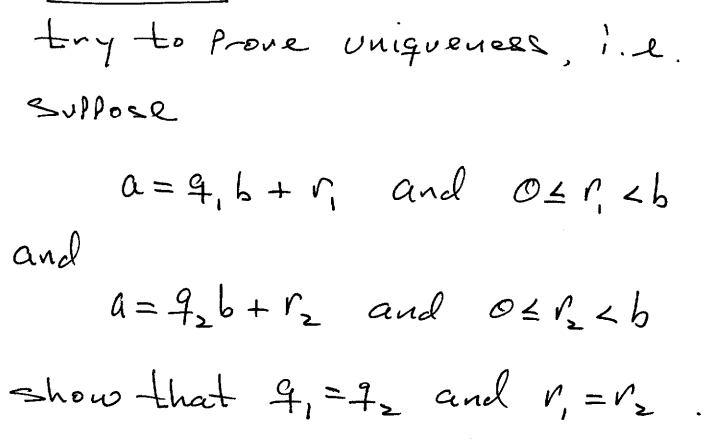 try to prove uniqueness, i.e.
suppose
a = q₁b + r₁ and 0 ≤ r₁ < b
and
a = q₂b + r₂ and 0 ≤ r₂ < b
show that q₁ = q₂ and r₁ = r₂.